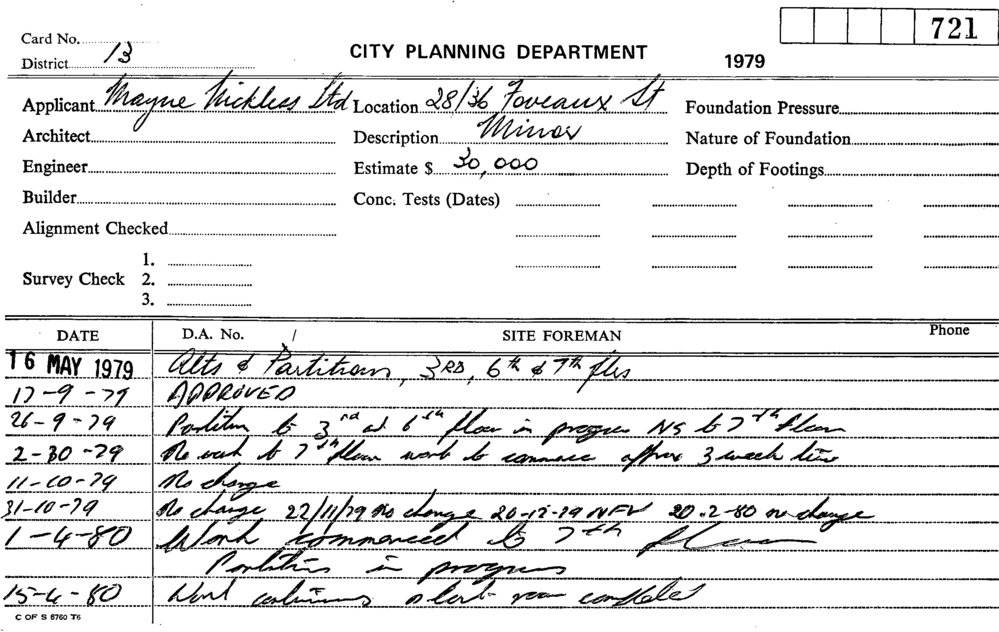 721
Card No.
CITY PLANNING DEPARTMENT 1979
District 13
Applicant Mayne Nickless Ltd Location 28/36 Foveaux St Foundation Pressure
Architect Description Minor Nature of Foundation
Engineer Estimate $ 30,000 Depth of Footings
Builder Conc. Tests (Dates)
Alignment Checked
1.
Survey Check 2.
3.
DATE D.A. No. / SITE FOREMAN Phone
16 MAY 1979 Alts & Partitions, 3RD, 6th & 7th flrs
17-9-79 APPROVED
26-9-79 Partition to 3rd 6th floor in progress NS to 7th floor
2-30-79 No work to 7th floor work to commence approx 3 week time
11-10-79 No change
31-10-79 No change 22/11/79 No change 20-12-79 20-2-80 no change
1-4-80 Work commenced to 7th floor
Partitions in progress
15-4-80 Work continues room completed
C OF S 8760 T6